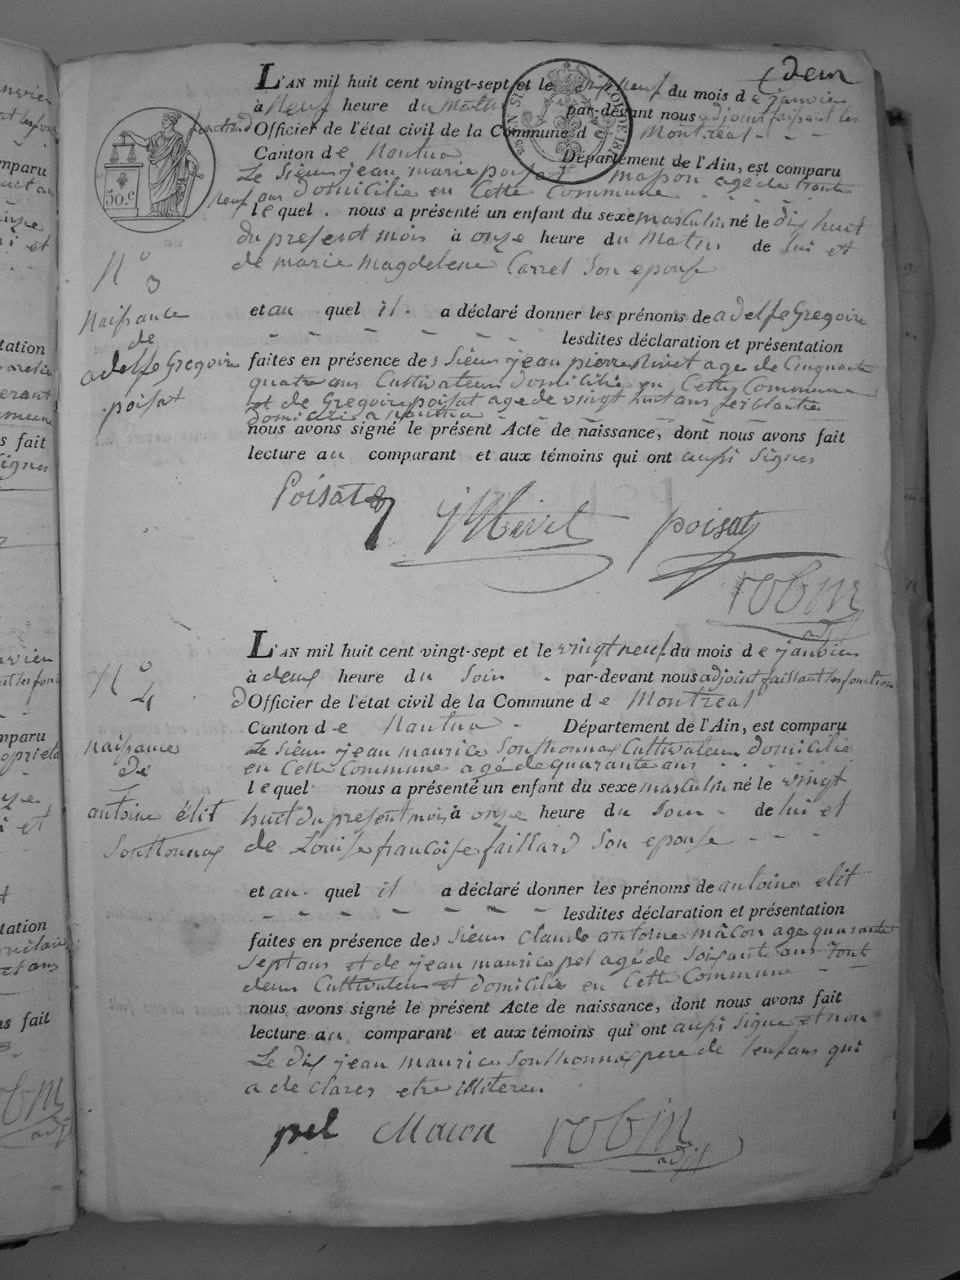 deux
L'AN mil huit cent vingt-sept et le dix neuf du mois de janvier
à Neuf heure du Matin par-devant nous adjoint faisant les
fonctions d Officier de l'état civil de la Commune de Montréal - - -
Canton de Nantua Département de l'Ain, est comparu
Le Sieur jean marie poisat masson agé de trante
neuf ans domicilié en Cette Commune
lequel . nous a présenté un enfant du sexe masculin né le dix huit
du present mois à onze heure du Matin de lui et
de marie magdelene Carrel Son epouse
50.c
N° 3
Naissance
de
adelfe Gregoire
poisat
et au quel il a déclaré donner les prénoms de adelfe Gregoire
- - - - - - lesdites déclaration et présentation
faites en présence des Sieur jean pierre Nivet age de Cinquante
quatre ans Cultivateur domicilié en Cette Commune
et de Gregoire poisat age de vingt huit ans ferblantié
domicilié a Nantua
nous avons signé le présent Acte de naissance, dont nous avons fait
lecture au comparant et aux témoins qui ont aussi signes
Poisat poisat
robin
adj
L'AN mil huit cent vingt-sept et le vingt neuf du mois de janvier
à deux heure du Soir - par-devant nous adjoint faissant les fonction
d Officier de l'état civil de la Commune de Montréal
Canton de Nantua - Département de l'Ain, est comparu
Le Sieur jean maurice Sonthonnax Cultivateur domicilié
en Cette Commune agé de quarante ans
lequel nous a présenté un enfant du sexe masculin né le vingt
huit du present mois à onze heure du Soir - de lui et
de Louise francoise faillard Son epouse - - -
N° 4
Naissance
de
antoine élit
Sonthonnax
et au quel il a déclaré donner les prénoms de antoine elit
- - - - - - lesdites déclaration et présentation
faites en présence des Sieur Claude antoine mâcon age quarante
sept ans et de jean maurice pel agé de Soixante ans tout
deux Cultivateur et domicilié en Cette Commune
nous avons signé le présent Acte de naissance, dont nous avons fait
lecture au comparant et aux témoins qui ont aussi signe et non
Le dix jean maurice Sonthonnax pere de l'enfans qui
a declares etre illiteren
pel Macon robin
adj